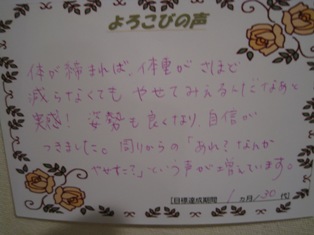 よろこびの声
体が締まれば、体重がさほど
減らなくても やせてみえるんだなあと
実感! 姿勢も良くなり、自信が
つきました。周りからの「あれ?なんか
やせた?」という声が増えています。
【目標達成期間 1ヵ月/30代】